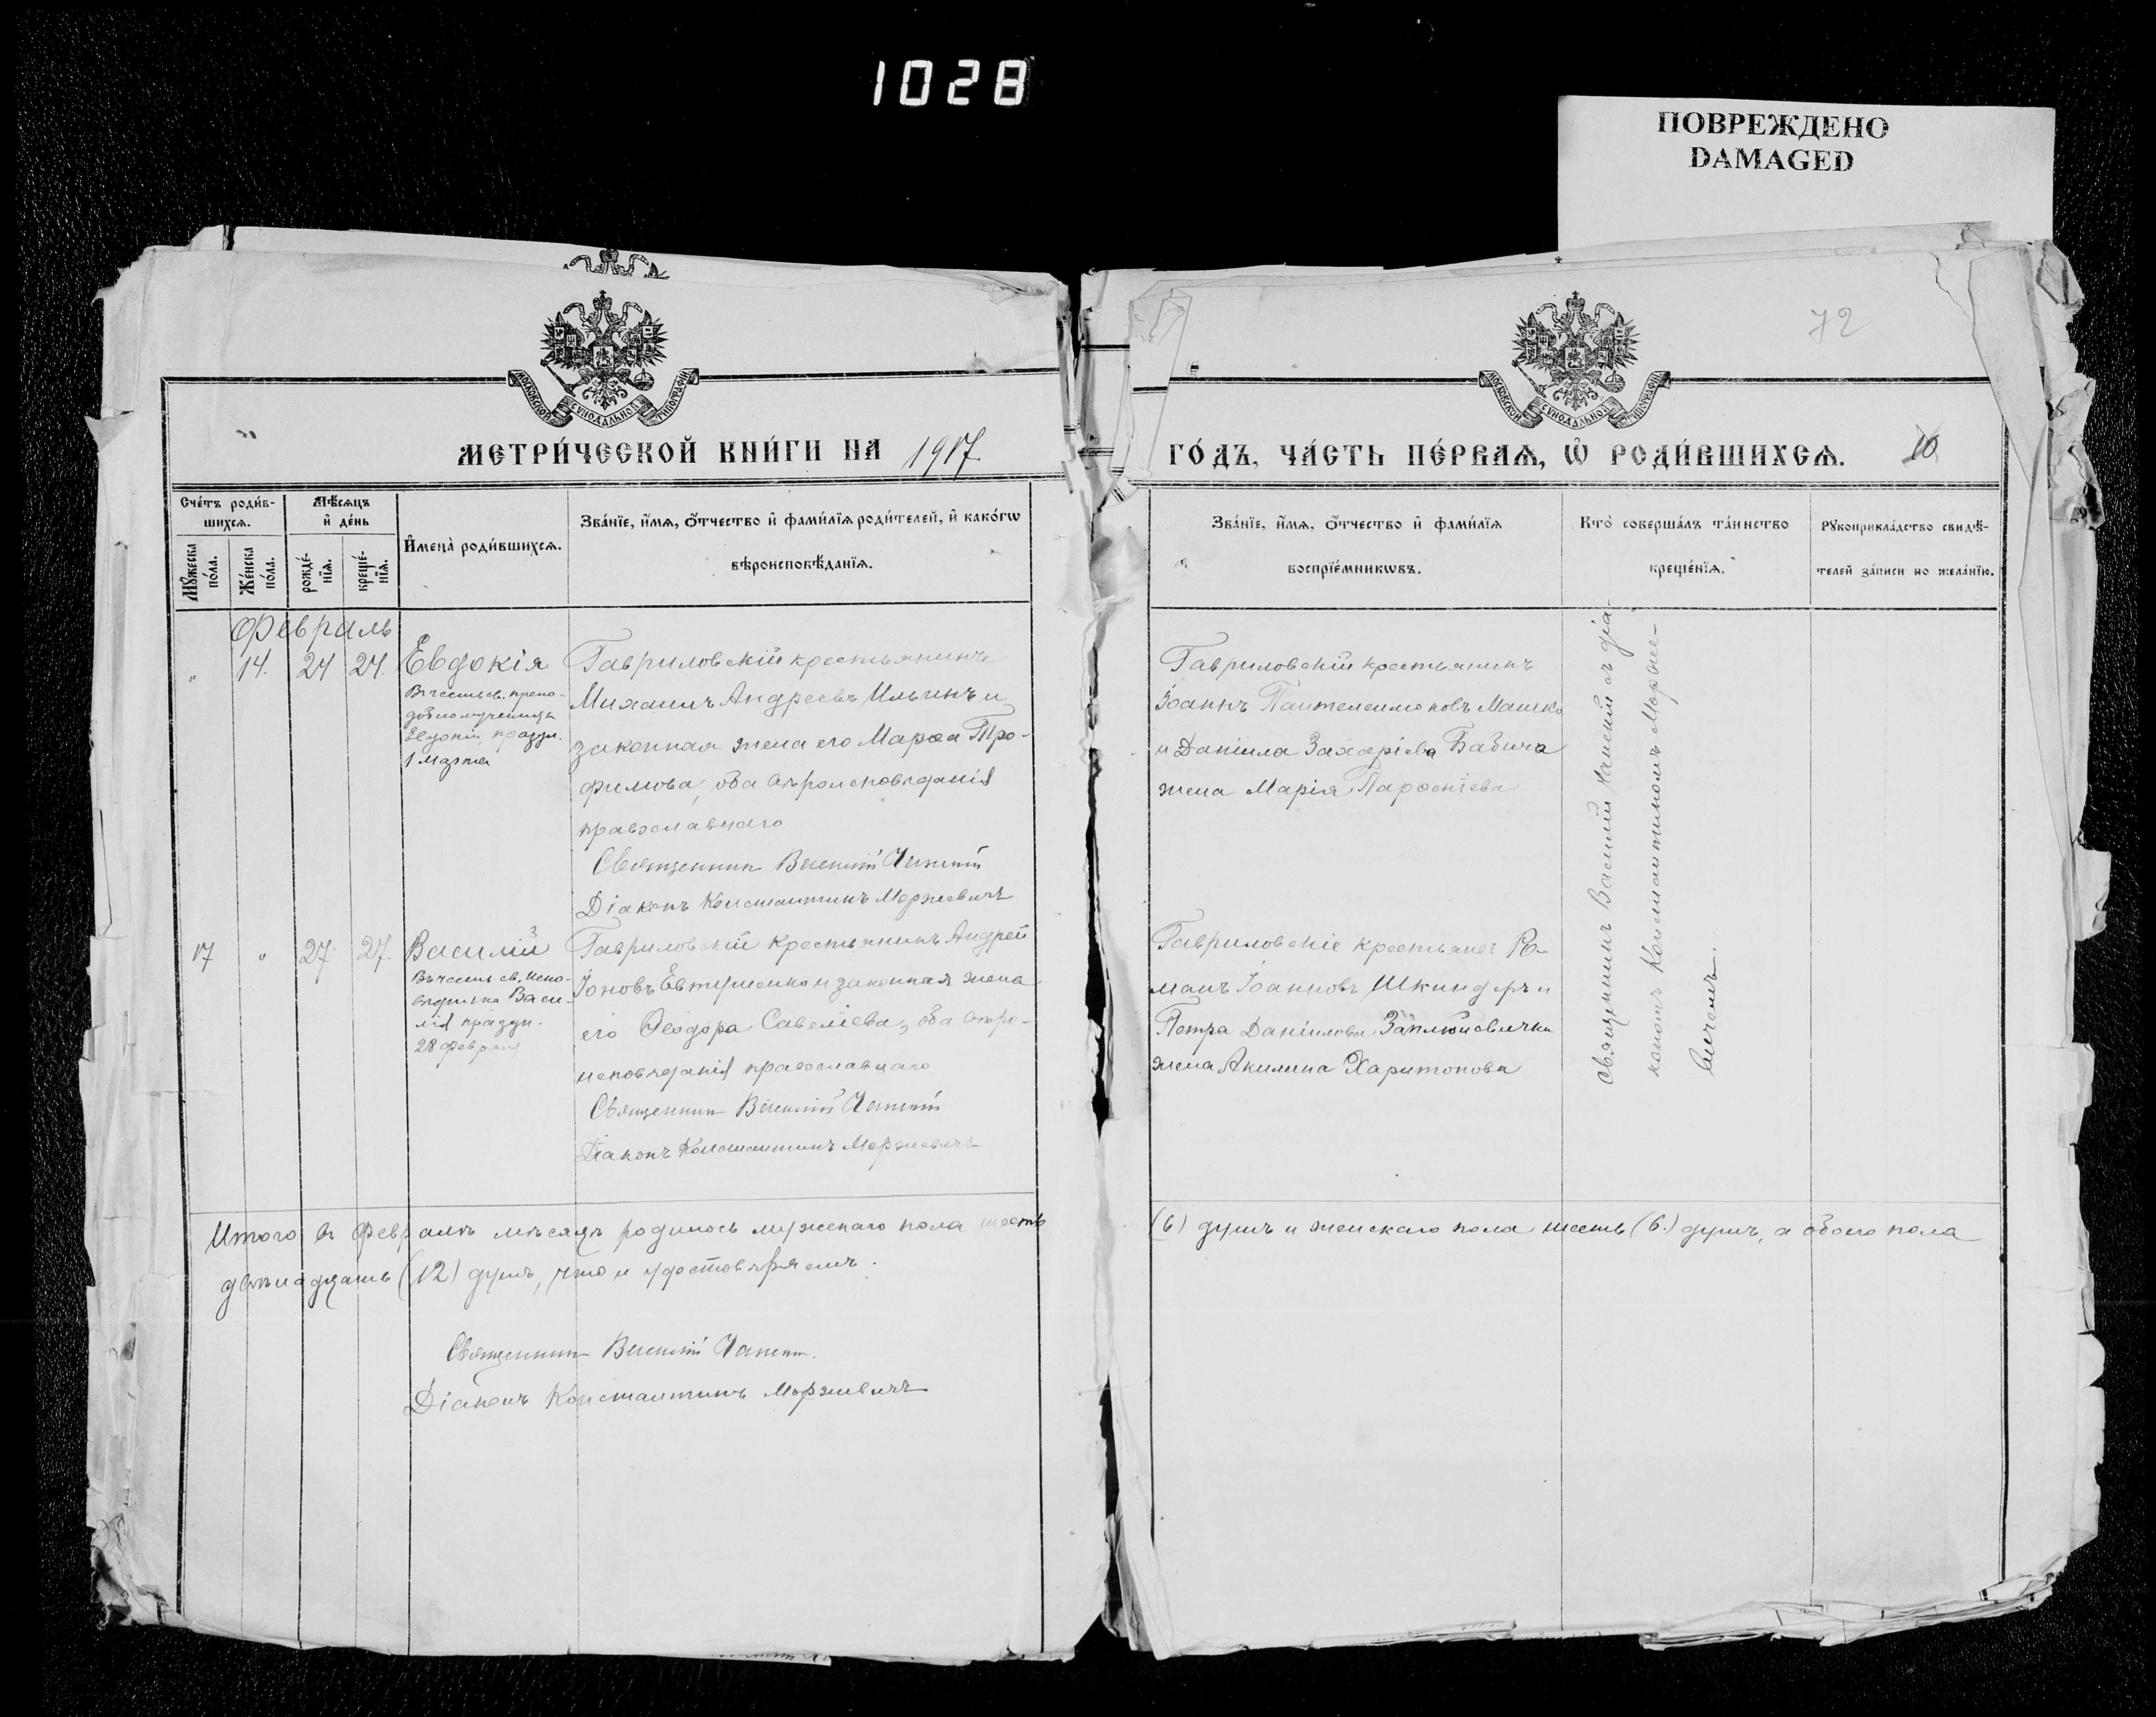 1028
ПОВРЕЖДЕНО
DAMAGED
72
МОСКОВСКОЙ СѴНОДАЛЬНОЙ ТИПОГРАФІИ
МОСКОВСКОЙ СѴНОДАЛЬНОЙ ТИПОГРАФІИ
МЕТРИ́ЧЕСКОЙ КНИ́ГИ НА 1917
ГО́ДЪ, ЧА́СТЬ ПЕ́РВАѦ, Ѡ҆ РОДИ́ВШИХСѦ. 10
Сче́тъ роди́в-
шихсѧ.
Мѣ́сѧцъ
и҆ де́нь
Мꙋ́жеска
по́ла.
Же́нска
по́ла.
рожде́-
нїѧ.
креще́-
нїѧ.
И҆мена̀ роди́вшихсѧ.
Зва́нїе, и҆́мѧ, ѻ҆́тчество и҆ фами́лїѧ роди́телей, и҆ како́гѡ
вѣроисповѣ́данїѧ.
Зва́нїе, и҆́мѧ, ѻ҆́тчество и҆ фами́лїѧ
воспрїе́мникѡвъ.
Кто̀ соверша́лъ та́инство
креще́нїѧ.
Рꙋкоприкла́дство свидѣ́-
телей за́писи по жела́нїю.
Февраль
" 14. 24 24. Евдокія
Въ честь св. препо-
добномученицы
Евдокіи, праздн.
1 Марта
Гавриловскій крестьянинъ
Михаилъ Андреевъ Ильинъ и
законная жена его Марѳа Тро-
фимова, оба вѣроисповѣданія
православнаго
Священникъ Василій
Діаконъ Константинъ Моржевичъ
Гавриловскій крестьянинъ
Іоаннъ Пантелеимоновъ Машко
и Даніила Захаріева Бабича
жена Марія Парѳеніева
17 " 27 27. Василій
Въ честь св. испо-
вѣдника Васи-
лія праздн.
28 февраля
Гавриловскій крестьянинъ Андрей
Іоновъ Евтушенко и законная жена
его Ѳеодора Савеліева, оба вѣро-
исповѣданія православнаго
Священникъ Василій
Діаконъ Константинъ Моржевичъ
Гавриловскіе крестьяне: Ро-
манъ Іоанновъ Шкиндеръ и
Петра Даніилова
жена Акилина Харитонова
Священникъ Василій съ діа-
кономъ Константиномъ Морже-
вичемъ.
Итого въ Февралѣ мѣсяцѣ родилось мужескаго пола шесть
(6) душъ и женскаго пола шесть (6.) душъ, а обоего пола
двѣнадцать (12) душъ, что и удостовѣряемъ.
Священникъ Василій
Діаконъ Константинъ Моржевичъ